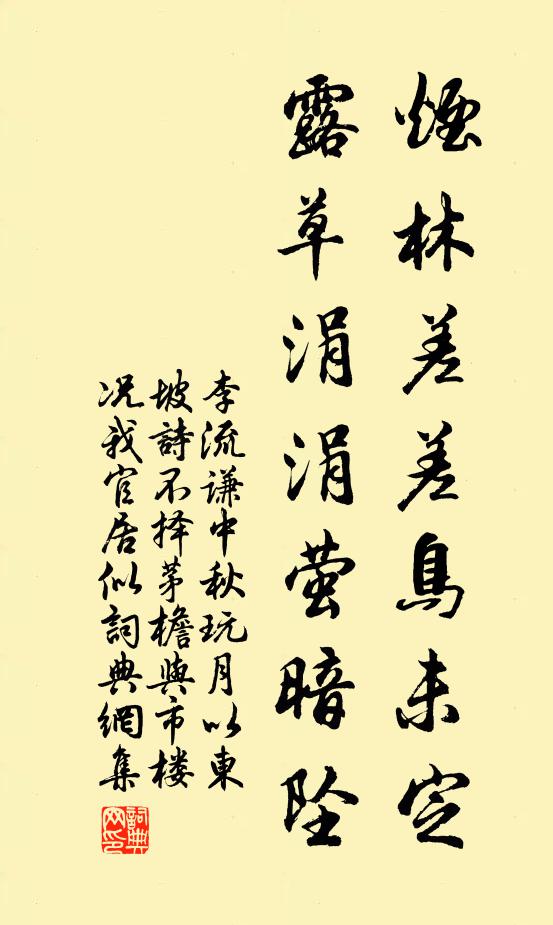 煙林差差鳥未定
露草涓涓萤暗坠
李流謙中秋玩月以東
坡詩不择茅檐與市楼
况我官居似詞典網集
詞典
网印